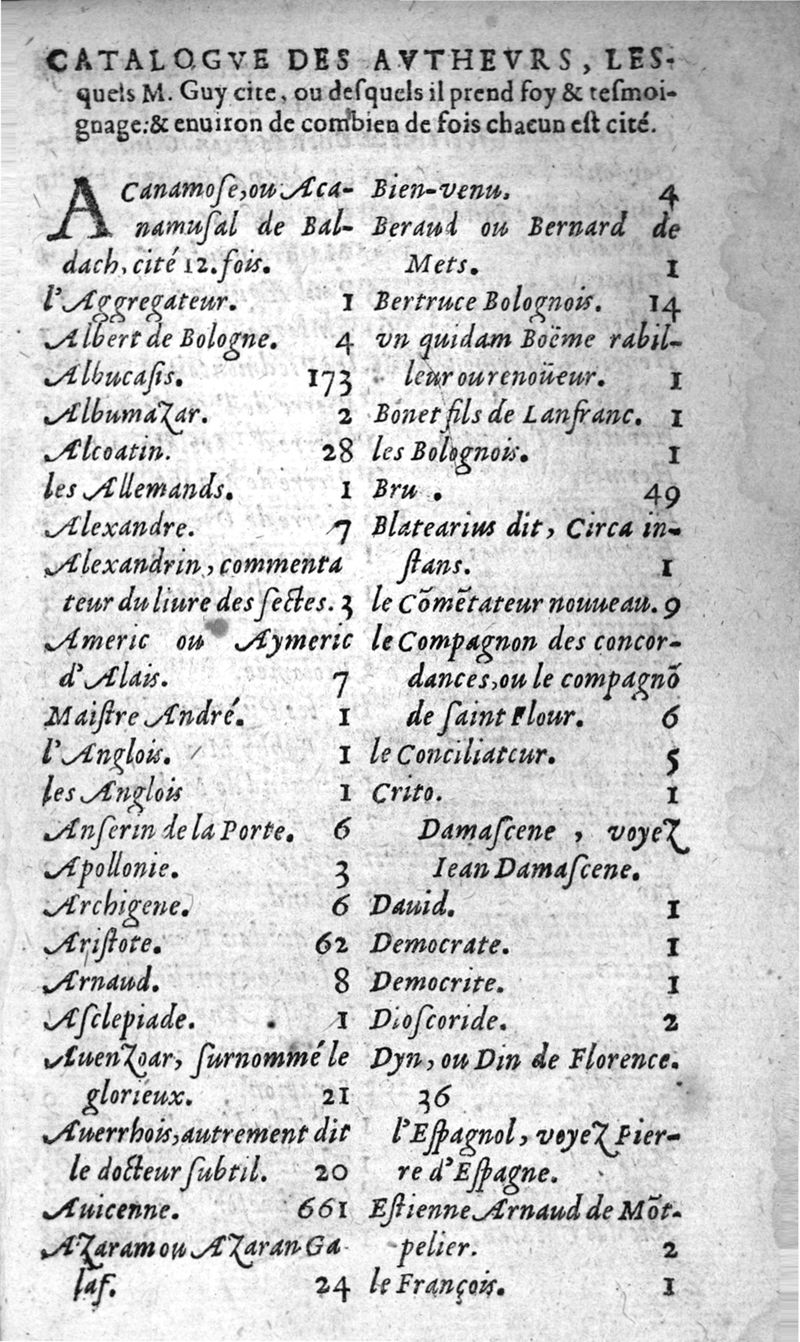 CATALOGVE DES AVTHEVRS, LES-
quels M. Guy cite, ou desquels il prend foy & tesmoi-
gnage: & enuiron de combien de fois chacun est cité.
ACanamose, ou Aca-
namusal de Bal-
dach, cité 12. fois.
l'Aggregateur. 1
Albert de Bologne. 4
Albucasis. 173
Albumazar. 2
Alcoatin. 28
les Allemands. 1
Alexandre. 7
Alexandrin, commenta
teur du liure des sectes. 3
Americ ou Aymeric
d'Alais. 7
Maistre André. 1
l'Anglois. 1
les Anglois 1
Anserin de la Porte. 6
Apollonie. 3
Archigene. 6
Aristote. 62
Arnaud. 8
Asclepiade. 1
Auenzoar, surnommé le
glorieux. 21
Auerrhois, autrement dit
le docteur subtil. 20
Auicenne. 661
Azaram ou Azaran Ga
laf. 24
Bien-venu. 4
Beraud ou Bernard de
Mets. 1
Bertruce Bolognois. 14
vn quidam Boëme rabil-
leur ou renoüeur. 1
Bonet fils de Lanfranc. 1
les Bolognois. 1
Bru . 49
Blatearius dit, Circa in-
stans. 1
le Cõmẽtateur nouueau. 9
le Compagnon des concor-
dances, ou le compagnõ
de saint Flour. 6
le Conciliateur. 5
Crito. 1
Damascene, voyez
Iean Damascene.
Dauid. 1
Democrate. 1
Democrite. 1
Dioscoride. 2
Dyn, ou Din de Florence.
36
l'Espagnol, voyez Pier-
re d'Espagne.
Estienne Arnaud de Mõt-
pelier. 2
le François. 1